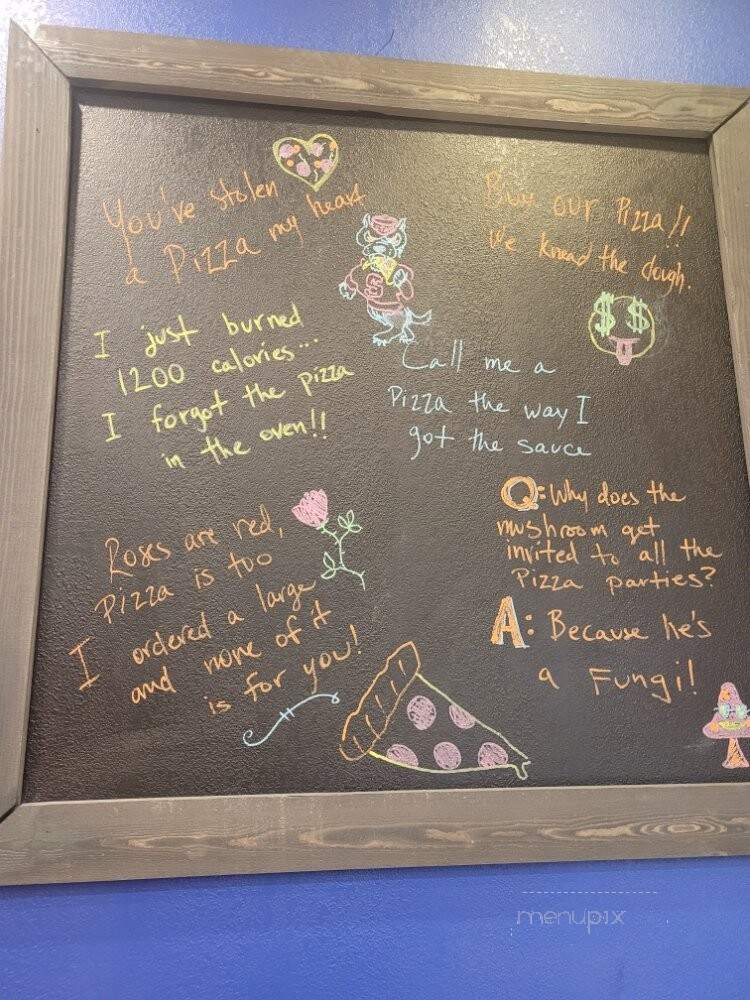 You've stolen
a Pizza my heart
Buy our Pizza!!
We knead the dough.
I just burned
1200 calories...
I forgot the pizza
in the oven!!
Call me a
Pizza the way I
got the sauce
Roses are red,
Pizza is too
I ordered a large
and none of it
is for you!
Q: Why does the
mushroom get
invited to all the
Pizza parties?
A: Because he's
a Fungi!
menupix